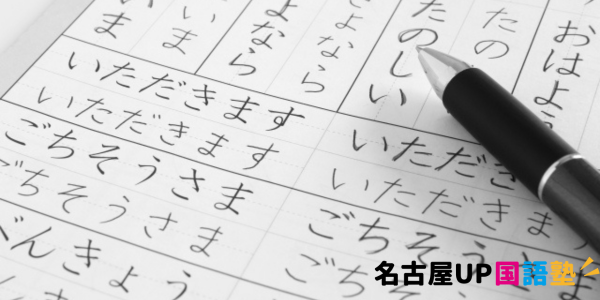 おはよう
たのしい
たの
さよなら
よなら
いま
ま
いただきます
いただきます
ごちそうさま
ごちそうさま
べんきょう
いただき
いただきま
ごちそうさ
ごちそ
名古屋UP国語塾